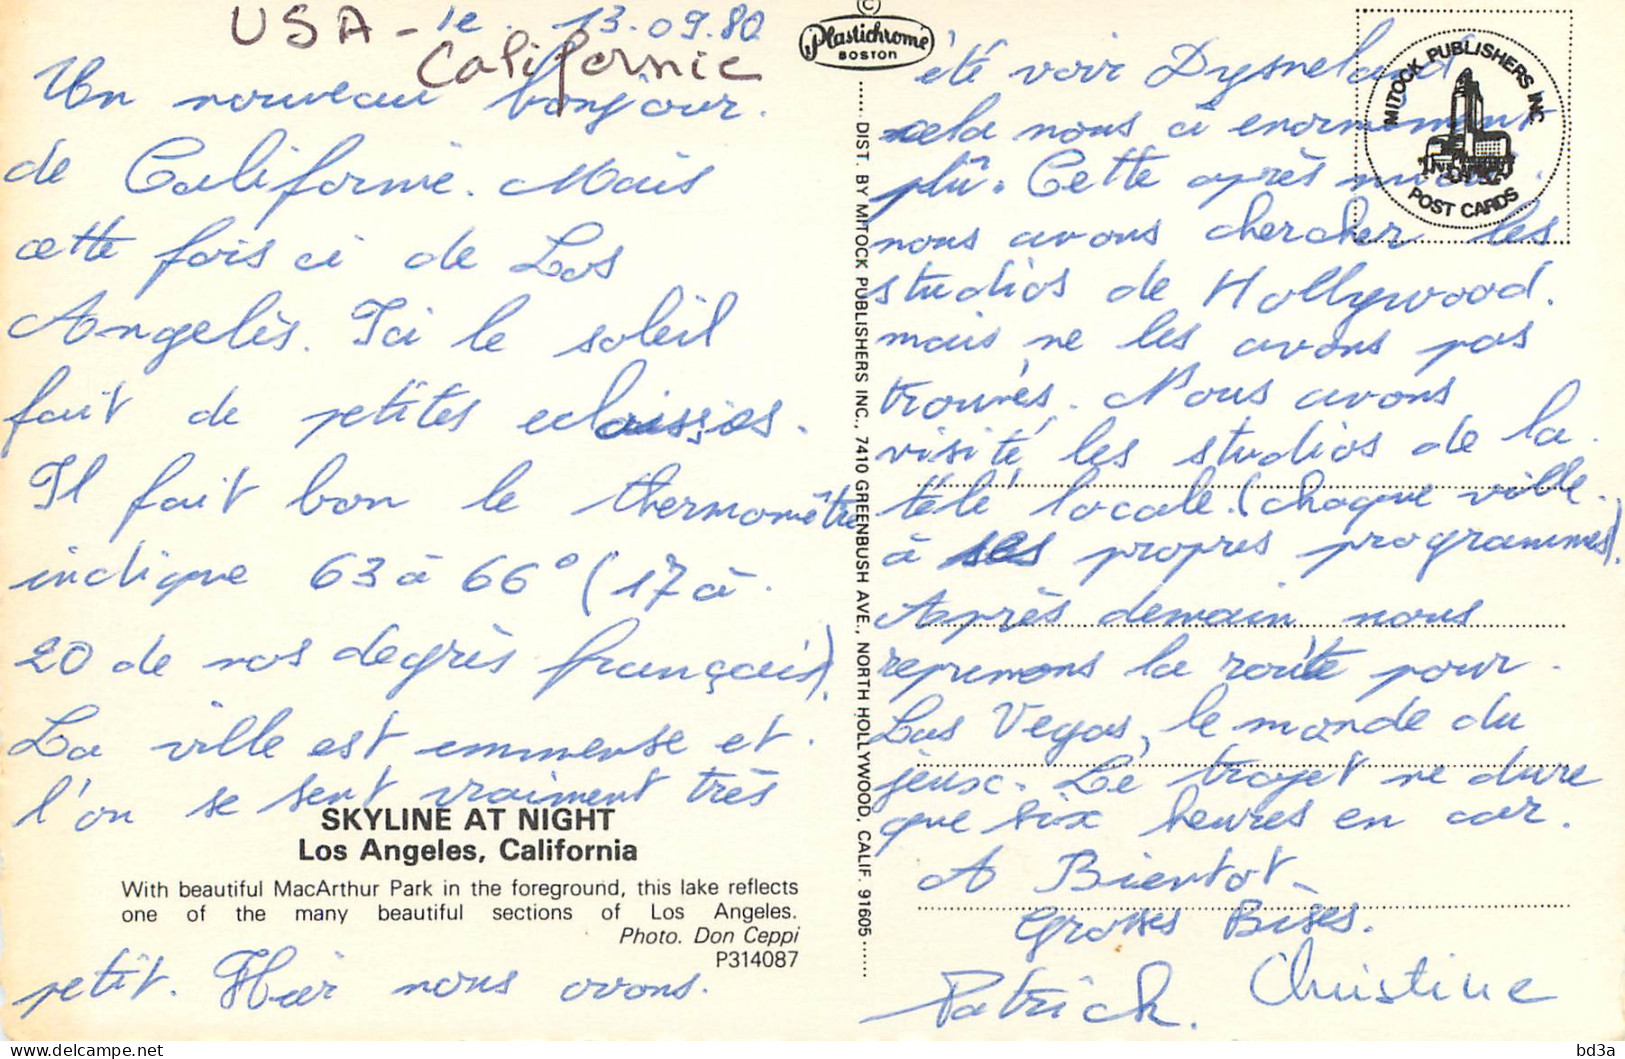 USA - le 13.09.80
Californie
Un nouveau bonjour.
de Californie. Mais
cette fois ci de Los
Angelès. Ici le soleil
fait de petites eclaissies.
Il fait bon le thermomêtre
indique 63 à 66° (17 à.
20 de nos degrès français).
La ville est emmense et.
l'on se sent vraiment très
SKYLINE AT NIGHT
Los Angeles, California
With beautiful MacArthur Park in the foreground, this lake reflects
one of the many beautiful sections of Los Angeles.
Photo. Don Ceppi
P314087
petit. Hier nous avons.
©
Plastichrome
BOSTON
DIST. BY MITOCK PUBLISHERS INC., 7410 GREENBUSH AVE., NORTH HOLLYWOOD, CALIF. 91605
MITOCK PUBLISHERS INC
POST CARDS
été voir Dysneland
cela nous a enormement
plû. Cette après
nous avons chercher les
studios de Hollywood.
mais ne les avons pas
trouvés. Nous avons
visité les studios de la.
télé locale. (chaque ville.
à ses propres programmes).
Après demain nous
reprenons la route pour.
Las Vegas, le monde du
jeux. Le trajet ne dure
que six heures en car.
A Bientot.
Grosses Bises.
Patrick. Christine
bd3a